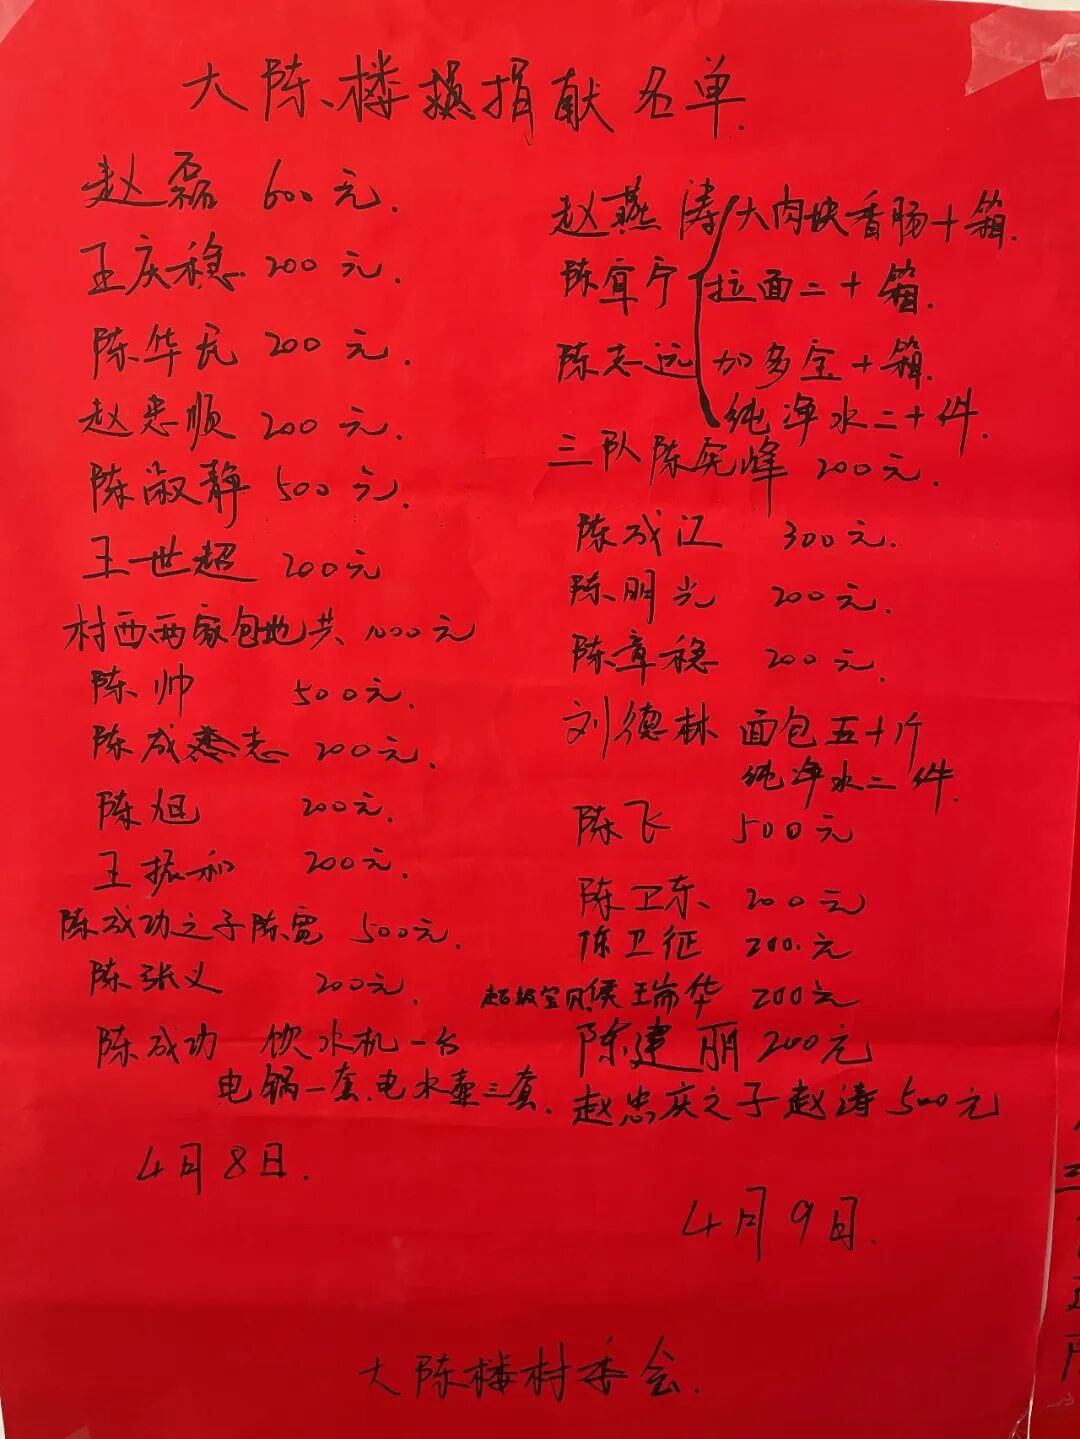 大陈楼捐献名单.
赵磊 600元.
王庆稳 200元.
陈华民 200元.
赵忠顺 200元.
陈淑静 500元.
王世超 200元
村西两家包地共 1000元
陈帅 500元.
陈成志 200元.
陈旭 200元.
王振和 200元.
陈成功之子陈宽 500元.
陈张义 200元.
陈成功 饮水机一台
电锅一套.电水壶三套.
4月8日.
赵燕涛 大肉块香肠十箱.
陈宜宁 拉面二十箱.
陈志远 加多宝十箱.
纯净水二十件.
三队陈宪峰 200元.
陈成江 300元.
陈明光 200元.
陈章稳 200元.
刘德林 面包五十斤
纯净水二件.
陈飞 500元
陈卫东 200元
陈卫征 200.元
超级宝贝侯瑞华 200元
陈建丽 200元
赵忠庆之子赵涛 500元
4月9日.
大陈楼村委会.